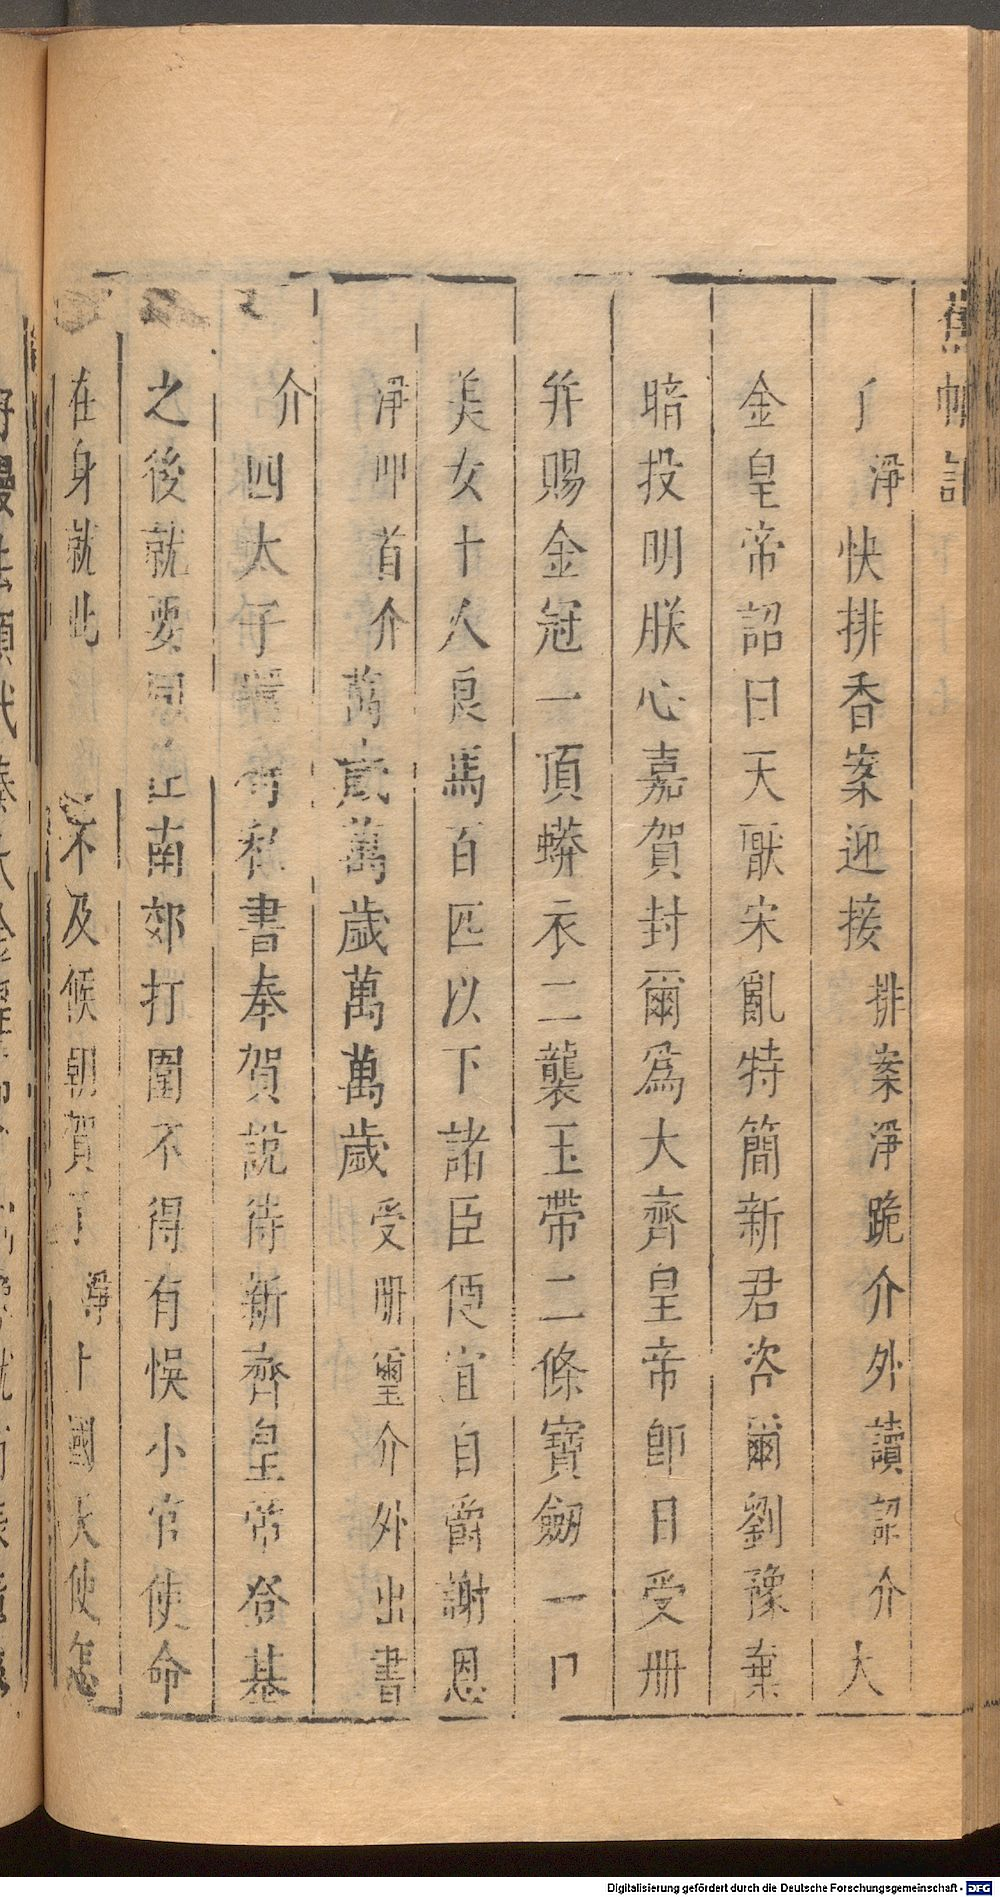 蕉帕記
了淨快排香案迎接排案淨跪介外讀詔介大
金皇帝詔曰天厭宋亂特簡新君咨爾劉豫棄
暗投明朕心嘉賀封爾爲大齊皇帝卽日受册
并賜金冠一頂蟒衣二襲玉帶二條寶劒一口
美女十人良馬百匹以下諸臣便宜自爵謝恩
淨叩首介萬歲萬歲萬萬歲受册璽介外出書
介四太子還有私書奉賀說待新齊皇帝登基
之後就要同往南郊打圍不得有悞小官使命
在身就此不及候朝賀了淨上國天使怎
Digitalisierung gefördert durch die Deutsche Forschungsgemeinschaft - DFG